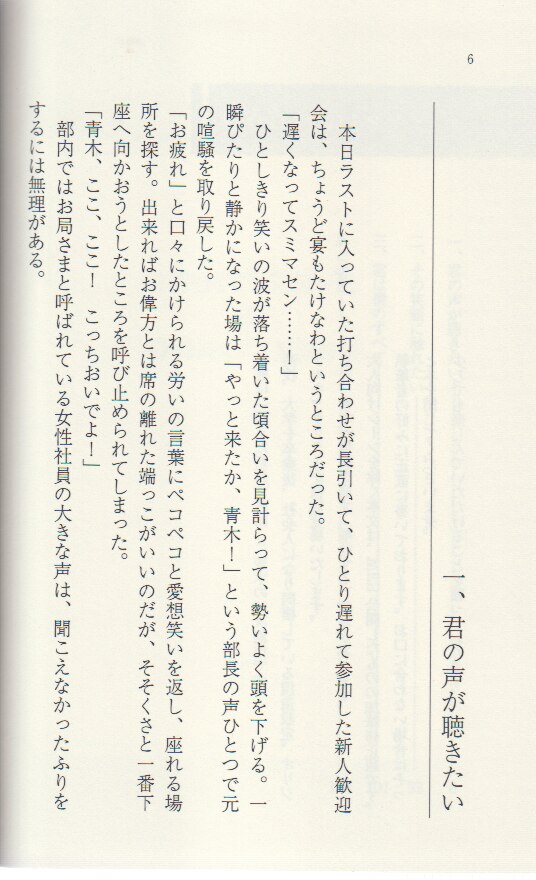 6
一、君の声が聴きたい
本日ラストに入っていた打ち合わせが長引いて、ひとり遅れて参加した新人歓迎
会は、ちょうど宴もたけなわというところだった。
「遅くなってスミマセン……！」
ひとしきり笑いの波が落ち着いた頃合いを見計らって、勢いよく頭を下げる。一
瞬ぴたりと静かになった場は「やっと来たか、青木！」という部長の声ひとつで元
の喧騒を取り戻した。
「お疲れ」と口々にかけられる労いの言葉にペコペコと愛想笑いを返し、座れる場
所を探す。出来ればお偉方とは席の離れた端っこがいいのだが、そそくさと一番下
座へ向かおうとしたところを呼び止められてしまった。
「青木、ここ、ここ！　こっちおいでよ！」
部内ではお局さまと呼ばれている女性社員の大きな声は、聞こえなかったふりを
するには無理がある。